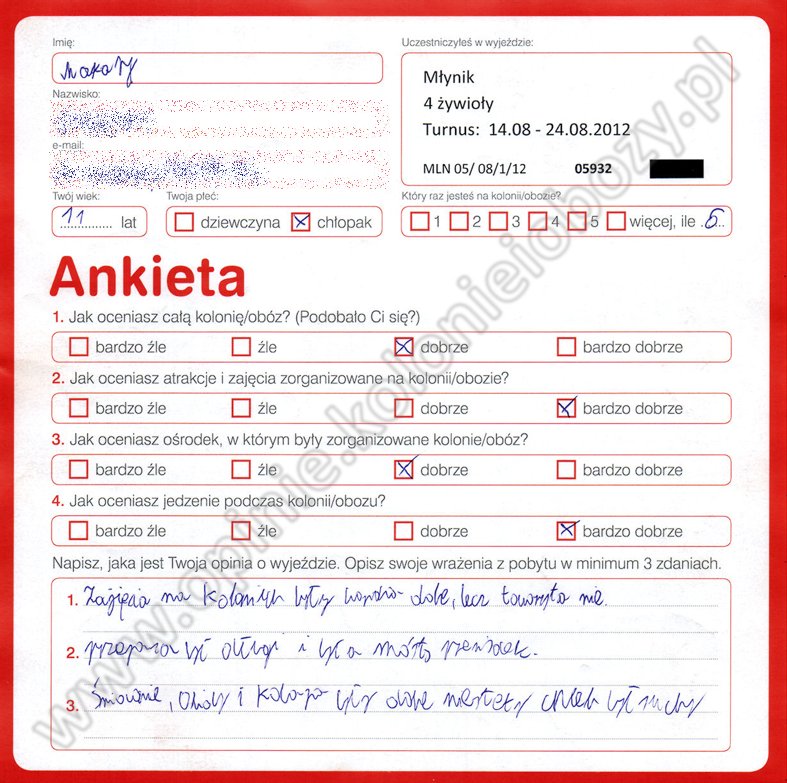 Imię:
Makary
Uczestniczyłeś w wyjeździe:
Młynik
4 żywioły
Turnus: 14.08 - 24.08.2012
MLN 05/ 08/1/12 05932
Nazwisko:
e-mail:
Twój wiek:
11 lat
Twoja płeć:
dziewczyna chłopak
Który raz jesteś na kolonii/obozie?
1 2 3 4 5 więcej, ile .6..
Ankieta
1. Jak oceniasz całą kolonię/obóz? (Podobało Ci się?)
bardzo źle źle dobrze bardzo dobrze
2. Jak oceniasz atrakcje i zajęcia zorganizowane na kolonii/obozie?
bardzo źle źle dobrze bardzo dobrze
3. Jak oceniasz ośrodek, w którym były zorganizowane kolonie/obóz?
bardzo źle źle dobrze bardzo dobrze
4. Jak oceniasz jedzenie podczas kolonii/obozu?
bardzo źle źle dobrze bardzo dobrze
Napisz, jaka jest Twoja opinia o wyjeździe. Opisz swoje wrażenia z pobytu w minimum 3 zdaniach.
1. Zajęcia na koloniach były bardzo dobre, lecz towarzystwo nie.
2. był długi i był a
3. Śniadanie, Obiady i Kolacja były dobre niestety chleb był suchy
www.opinie.kolonieiobozy.pl